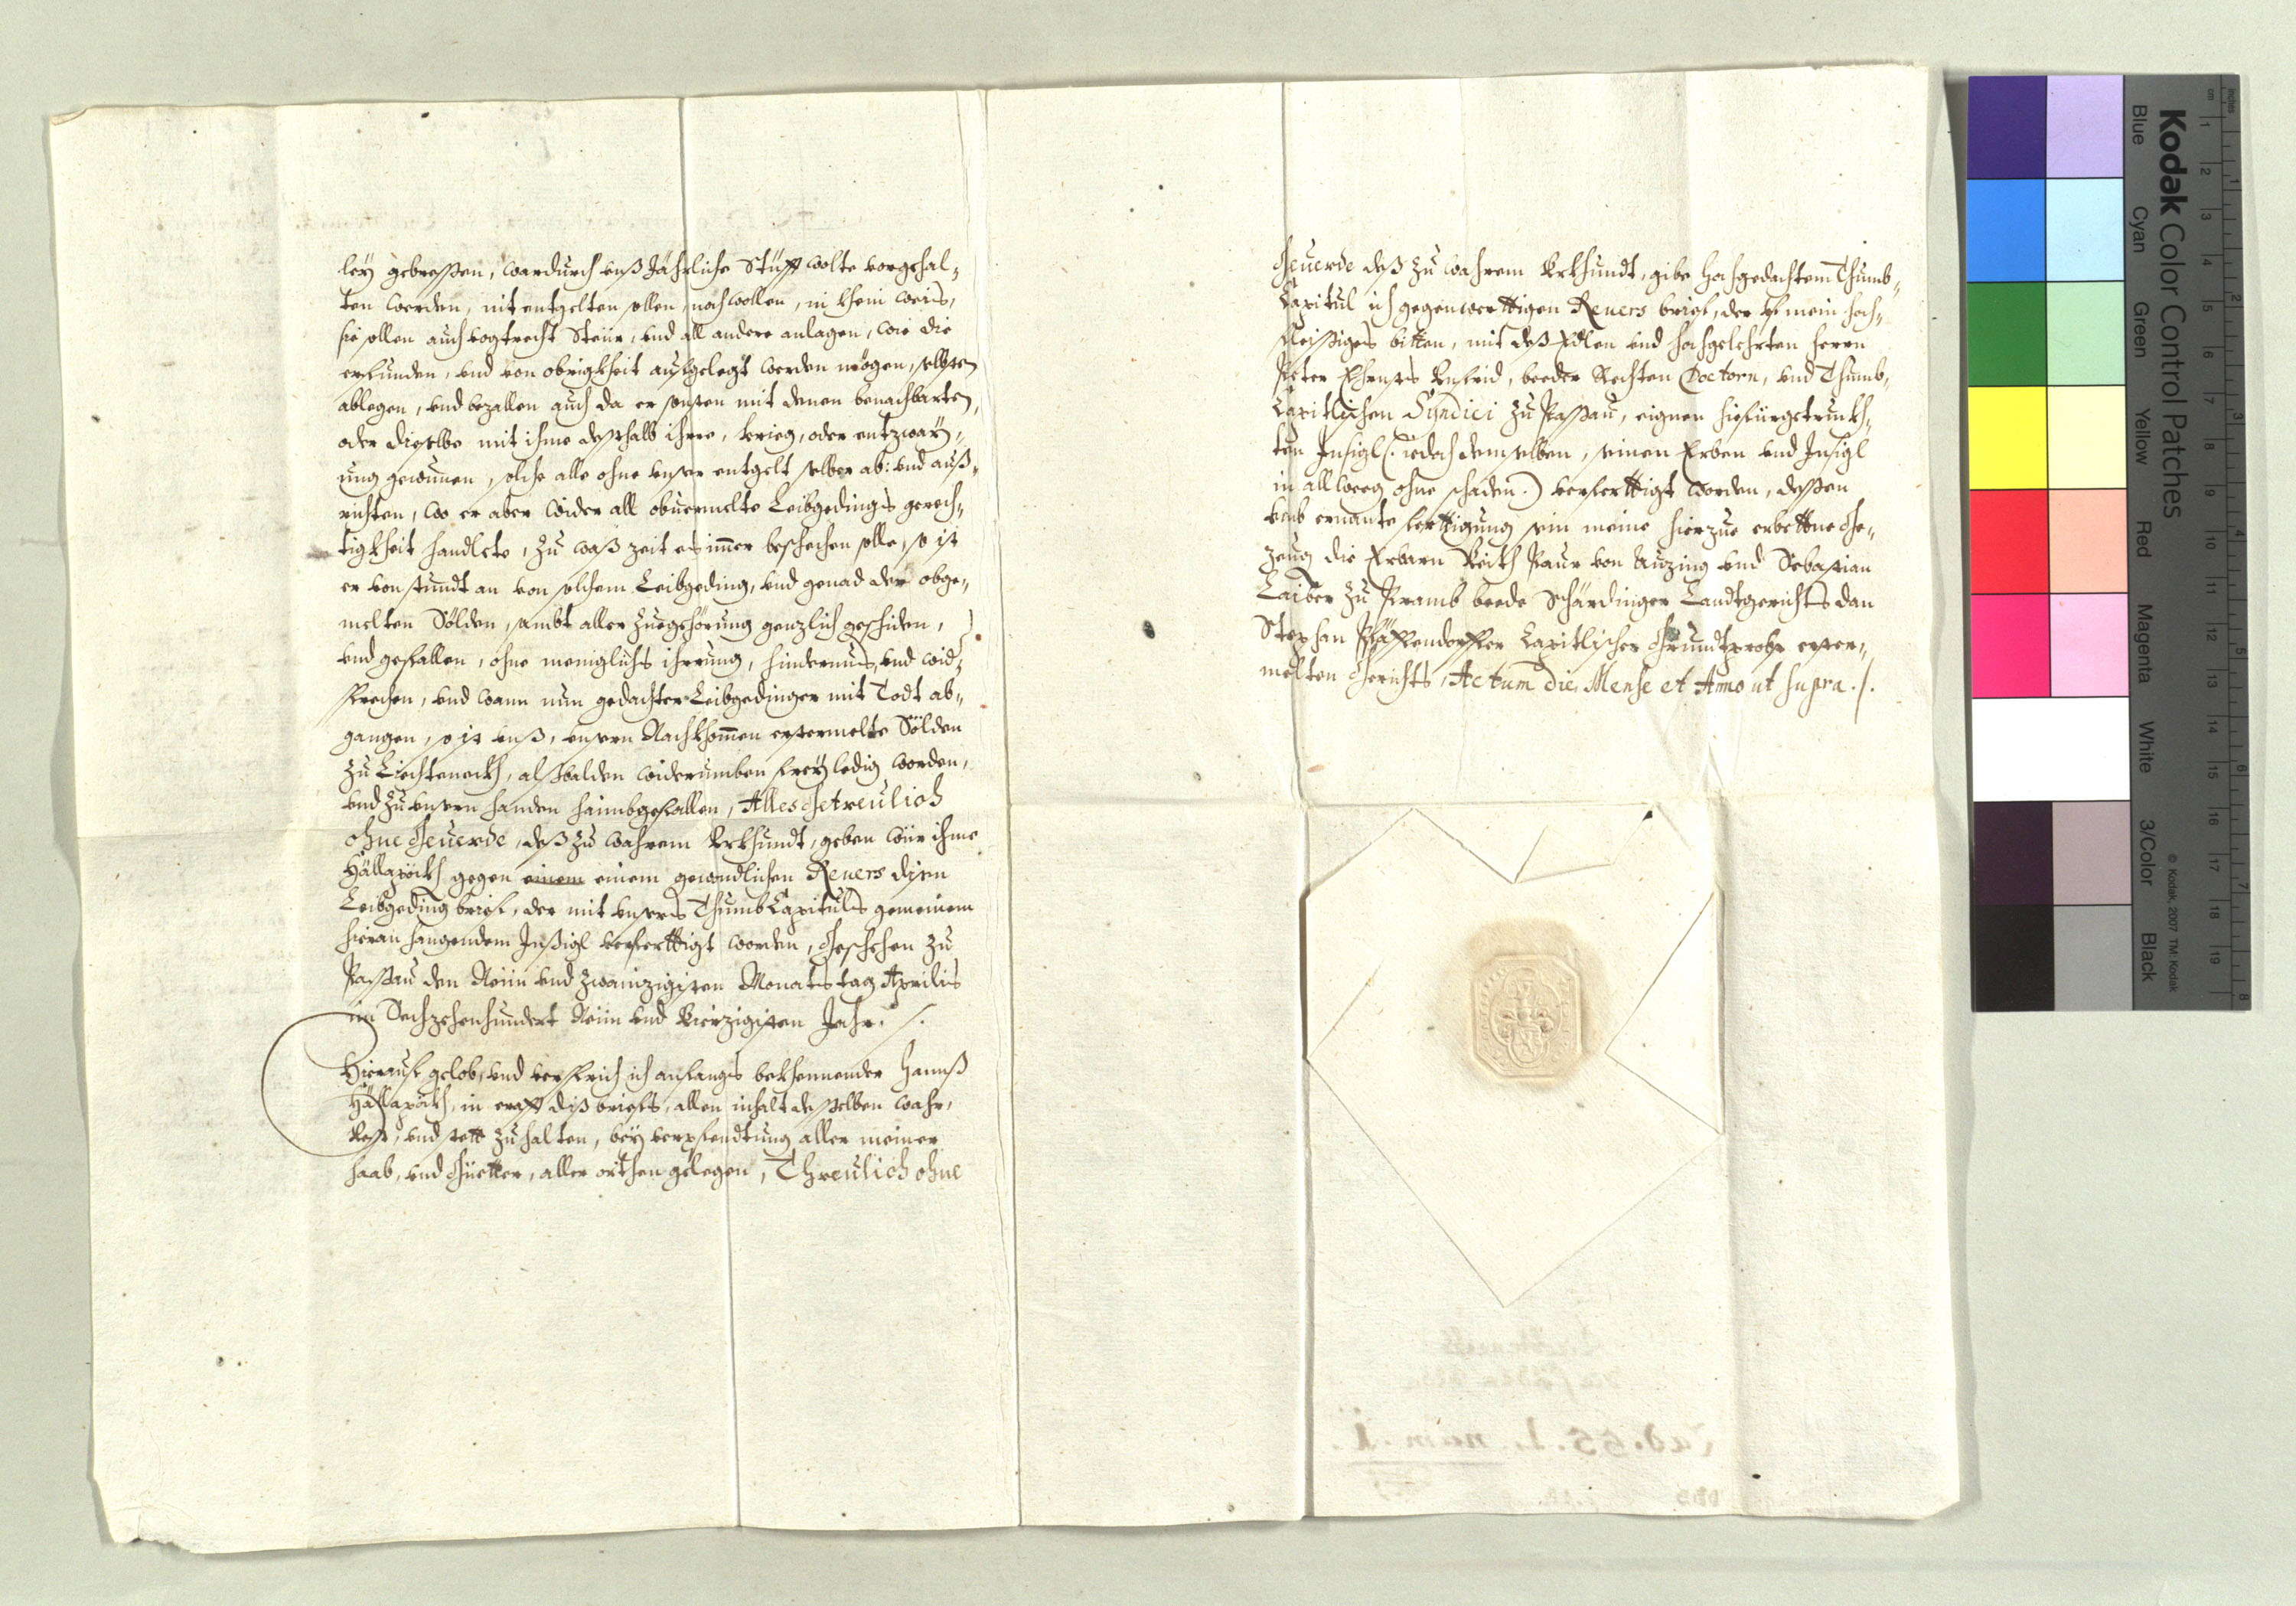 leÿ gebressen, wardurch unß Jährliche Stüfft wolte vorgehal-
ten werden, nit entgelten sollen noch wollen, in khein weis,
sie sollen auch vogtrecht Steür, und all andere anlagen, wie die
erfunden, und von obrigkheit aufgelegt werden mögen, selbsten
ablegen, und bezallen auch da er sonsten mit denen benachbarten,
oder dieselbe mit ihme deshalb ihrre, krieg, oder entzwaÿ-
ung gewunnen, solche alle ohne unser entgelt selber ab: und auß-
richten, wo er aber wider all obuermelte Leibgedings gerech-
tigkheit handlete, zu waß zeit es immer beschechen solle, so ist
er von stundt an von solchem Leibgeding, und genad der obge-
melten Sölden, sambt aller zuegehörung genzlich geschiden,
und gefallen, ohne meniglichs ihrrung, hindernus, und wid-
sprechen, und wann nun gedachter Leibgedinger mit Todt ab-
gangen, so ist unß, unsern Nachkhommen erstermelte Sölden
zu Liechteneckh, alßbalden widerumben freÿ ledig worden,
und zu unsern handen haimbgefallen, Alles Getreülich
ohne Geuerde, deß zu wahrem Urkhundt, geben wür ihme
Hällapöckh gegen einem einem gewondlichen Reuers disen
Leibgeding brief, der mit unsers ThumbCapituls gemeinem
hieran hangendem Insigl verferttigt worden, Geschehen zu
Passau den Neün und zwainzigisten Monats tag Aprilis
im Sechzehenhundert Neün und Vierzigisten Jahr. /.
Hierauf gelob, und versprich ich anfangs bekhennender Hannß
Hällapöckh, in crafft diß briefs, allen inhalt desselben wahr,
Vest, und stett zu halten, beÿ verpfendtung aller meiner
haab, und Güetter, aller orthen gelegen, Threülich ohne
Geuerde deß zu wahrem Urkhundt, gibe hochgedachtem Thumb-
Capitul ich gegenwerttigen Reuers brief, der uf mein hoch-
fleissiges bitten, mit deß Edlen und hochgelehrten herrn
Peter Ehrnsts beeder Rechten Doctorn, und Thumb-
Capitlischen Syndici zu Passau, eignen hiefürgetruckh-
ten Insigl (: iedoch demselben, seinen Erben und Insigl
in allweeg ohne schaden :) verferttigt worden, dessen
umb ernante ferttigung sein meine hierzue erbettne Ge-
zeug die Erbarn Veith Paur von Anzing und Sebastian
Laiber zu Pramb beede Schärdinger Landtgerichts dan
Stephan Pfäffendorffer Capitlischer Grundtprobst erster-
melten Gerichts, Actum Die, Mense et Anno ut supra ./.